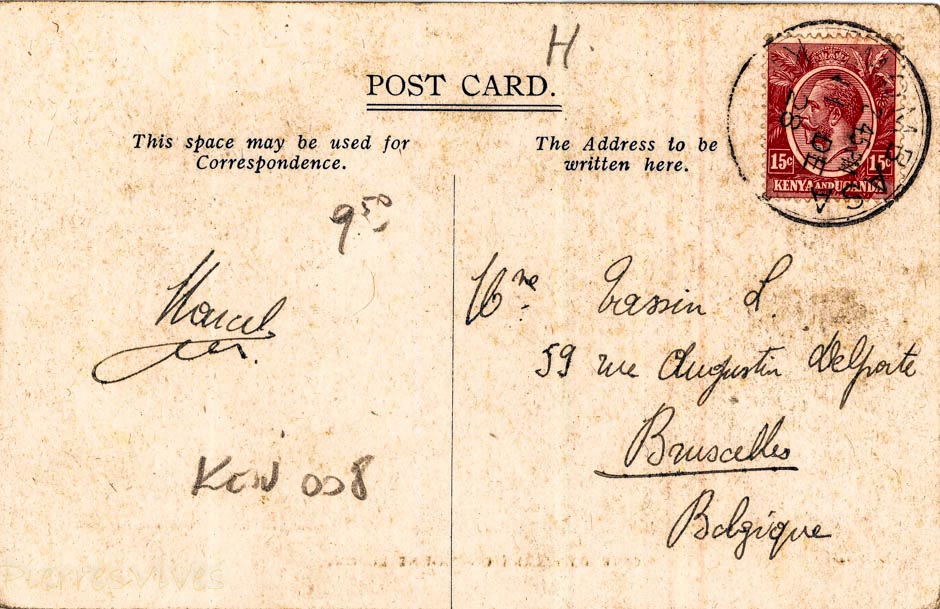 H.
POST CARD.
This space may be used for
Correspondence.
The Address to be
written here.
15c 15c
KENYA AND UGANDA
MOMBASA
DE
28
9 50
Marcel
Mme Tassin L.
59 rue Augustin Delporte
Bruxelles
Belgique
KEN 008
PierresVives